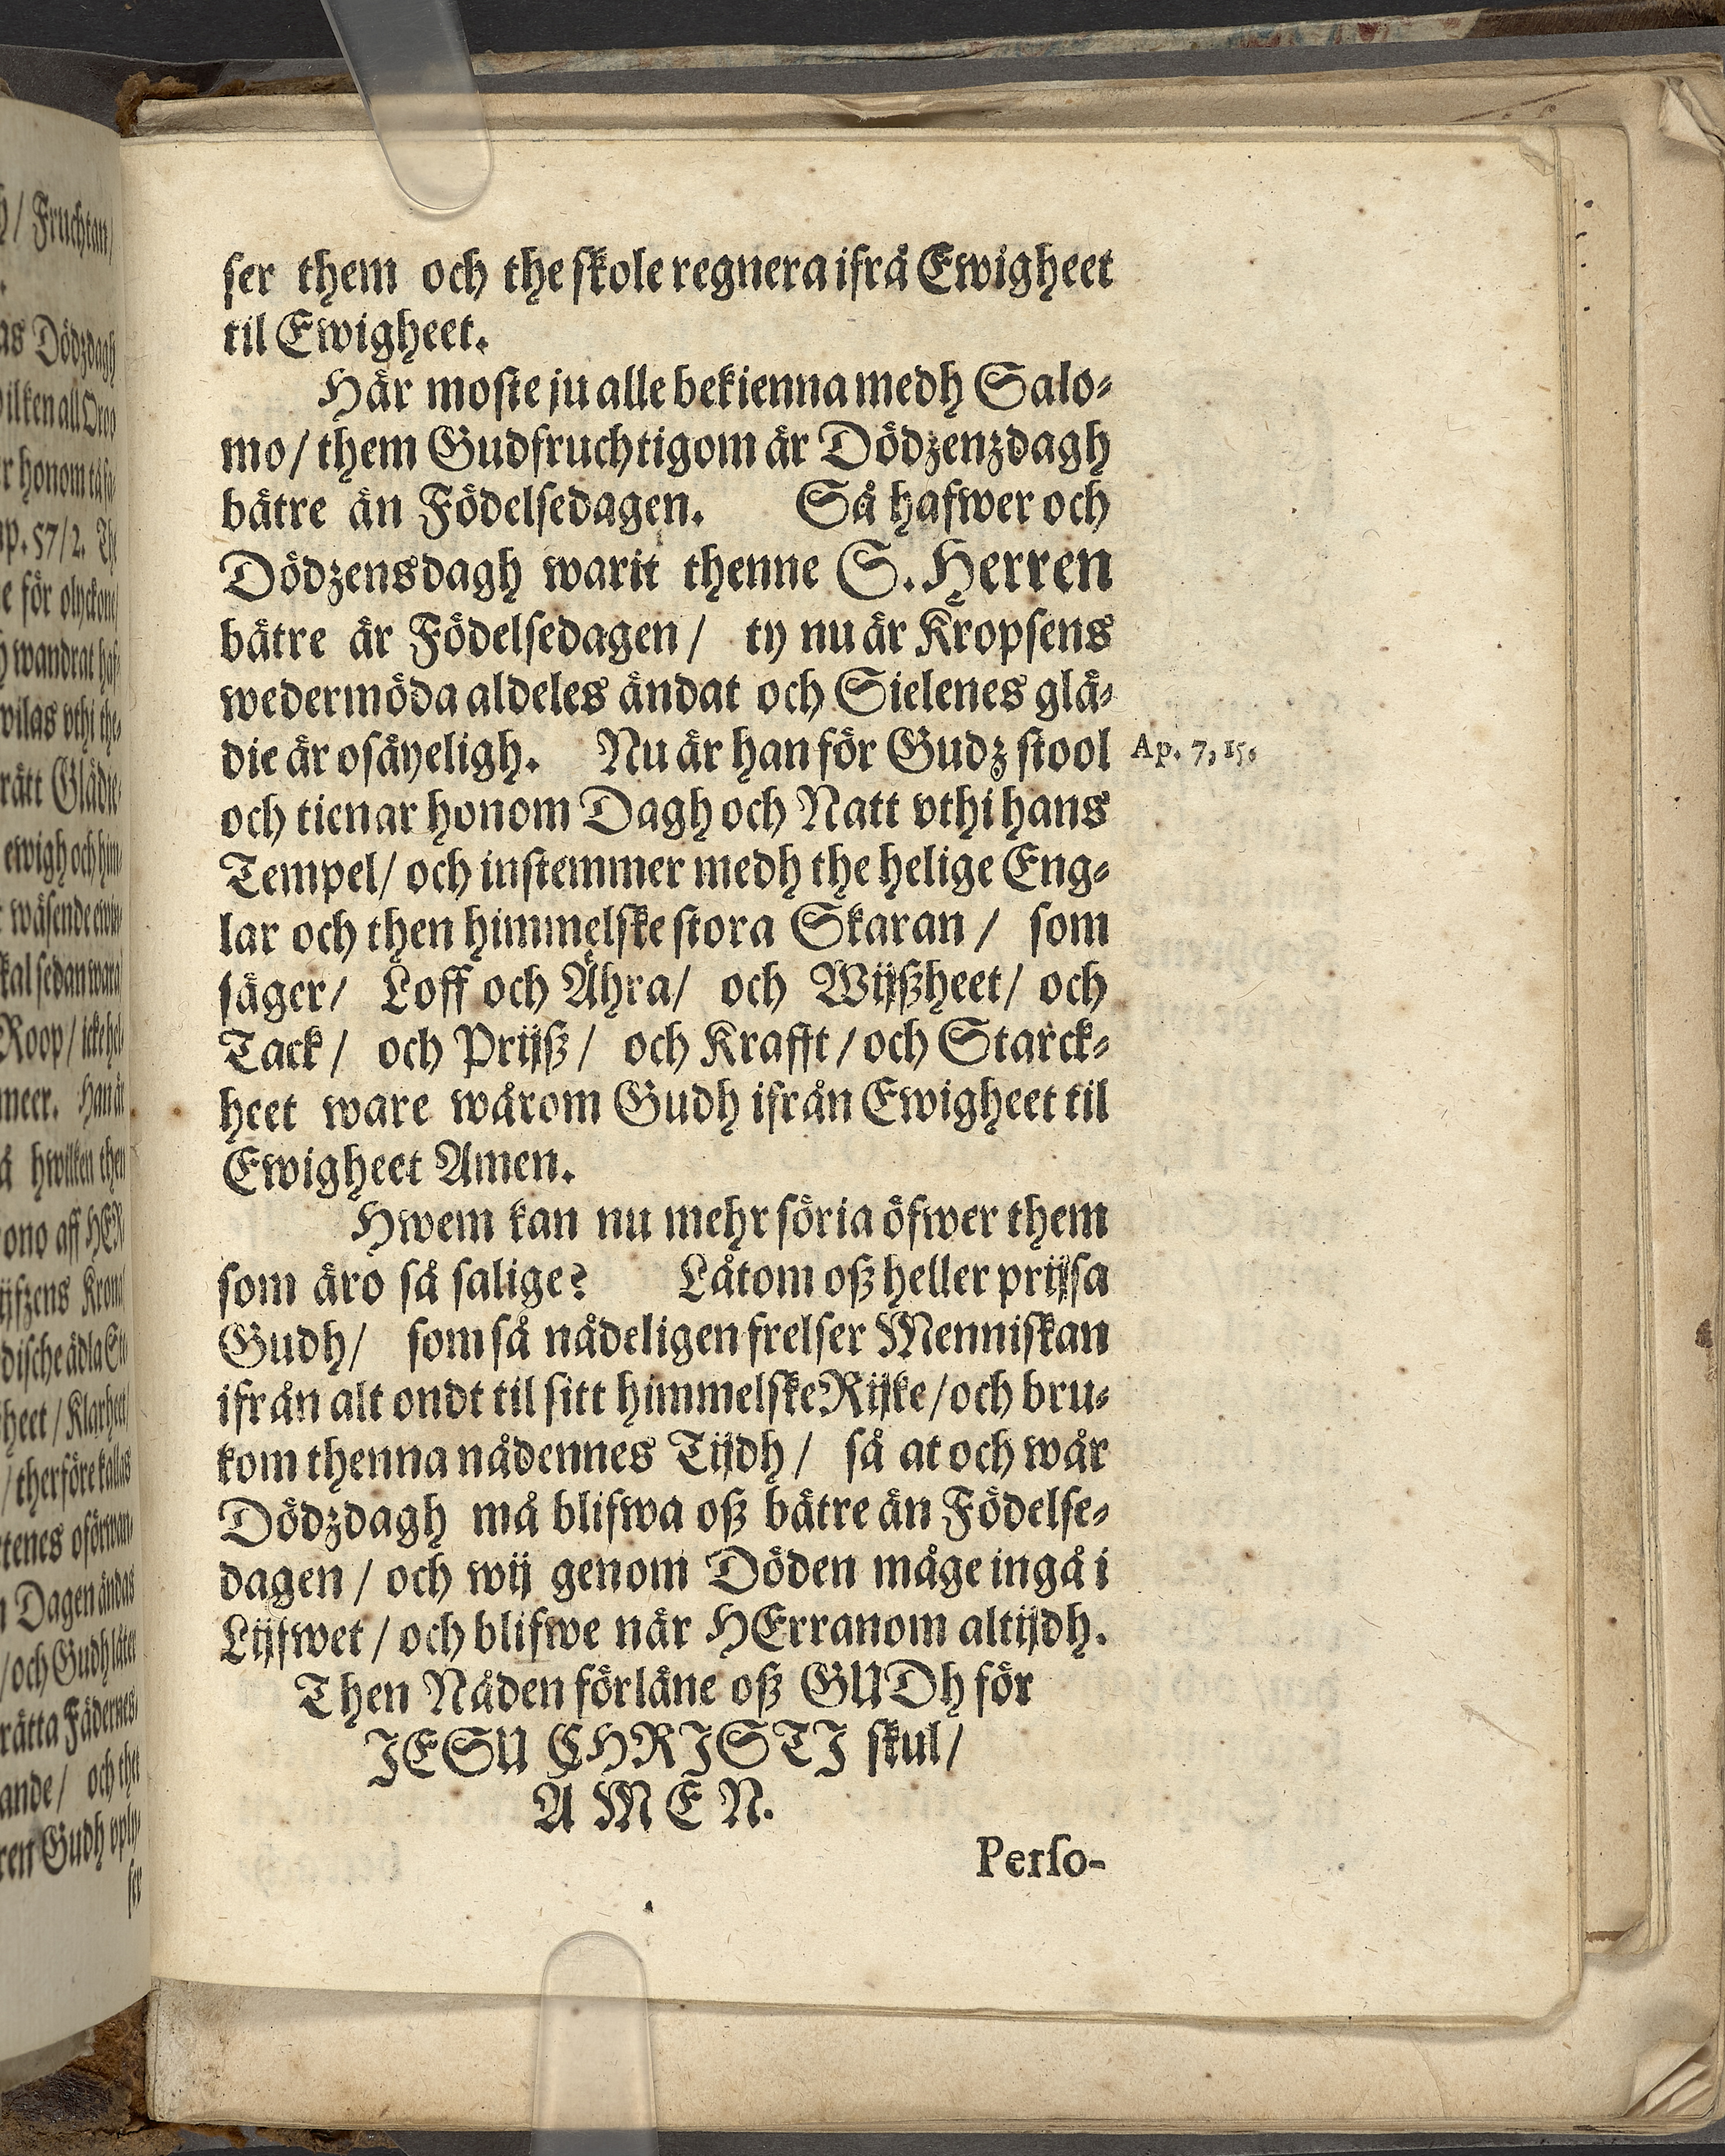 ser them och the skole regnera ifrå Ewigheet
til Ewigheet.
Här moste ju alle bekienna medh Salo-
mo/ them Gudfruchtigom är Dödzenzdagh
bätre än Födelsedagen. Så hafwer och
Dödzensdagh warit thenne S. Herren
bätre är Födelsedagen/ ty nu är Kropsens
wedermöda aldeles ändat och Sielenes glä-
die är osäyeligh. Nu är han för Gudz stool
Ap. 7, 15.
och tienar honom Dagh och Natt vthi hans
Tempel/ och instemmer medh the helige Eng-
lar och then himmelske stora Skaran/ som
säger/ Loff och Ähra/ och Wijßheet/ och
Tack/ och Prijß/ och Krafft/ och Starck-
heet ware wårom Gudh ifrån Ewigheet til
Ewigheet Amen.
Hwem kan nu mehr söria öfwer them
som äro så salige? Låtom oß heller prijsa
Gudh/ som så nådeligen frelser Menniskan
ifrån alt ondt til sitt himmelske Rijke/ och bru-
kom thenna nådennes Tijdh/ så at och wår
Dödzdagh må blifwa oß bätre än Födelse-
dagen/ och wij genom Döden måge ingå i
Lijfwet/ och blifwe när HErranom altijdh.
Then Nåden förläne oß GUDh för
JESU CHRISTJ skul/
AMEN.
Perso-